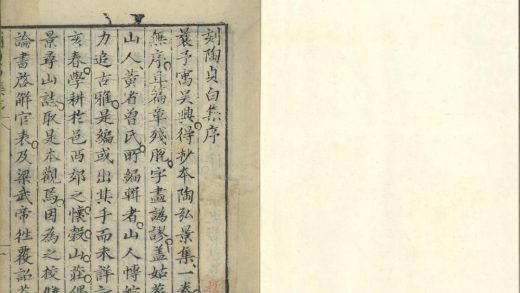 刻陶貞白集序
曩予寓吳興得抄本陶弘景集一卷
無序且篇章殘脫字盡譌謬蓋姑
山人黃省曾氏所編輯者山人博綜
力追古雅是編或出其手而未詳
亥春學耕於邑西郊之懷穀山莊偶
景尋山誌取是本觀焉因為之校讎
論書啓解官表及梁武帝牲覆詔